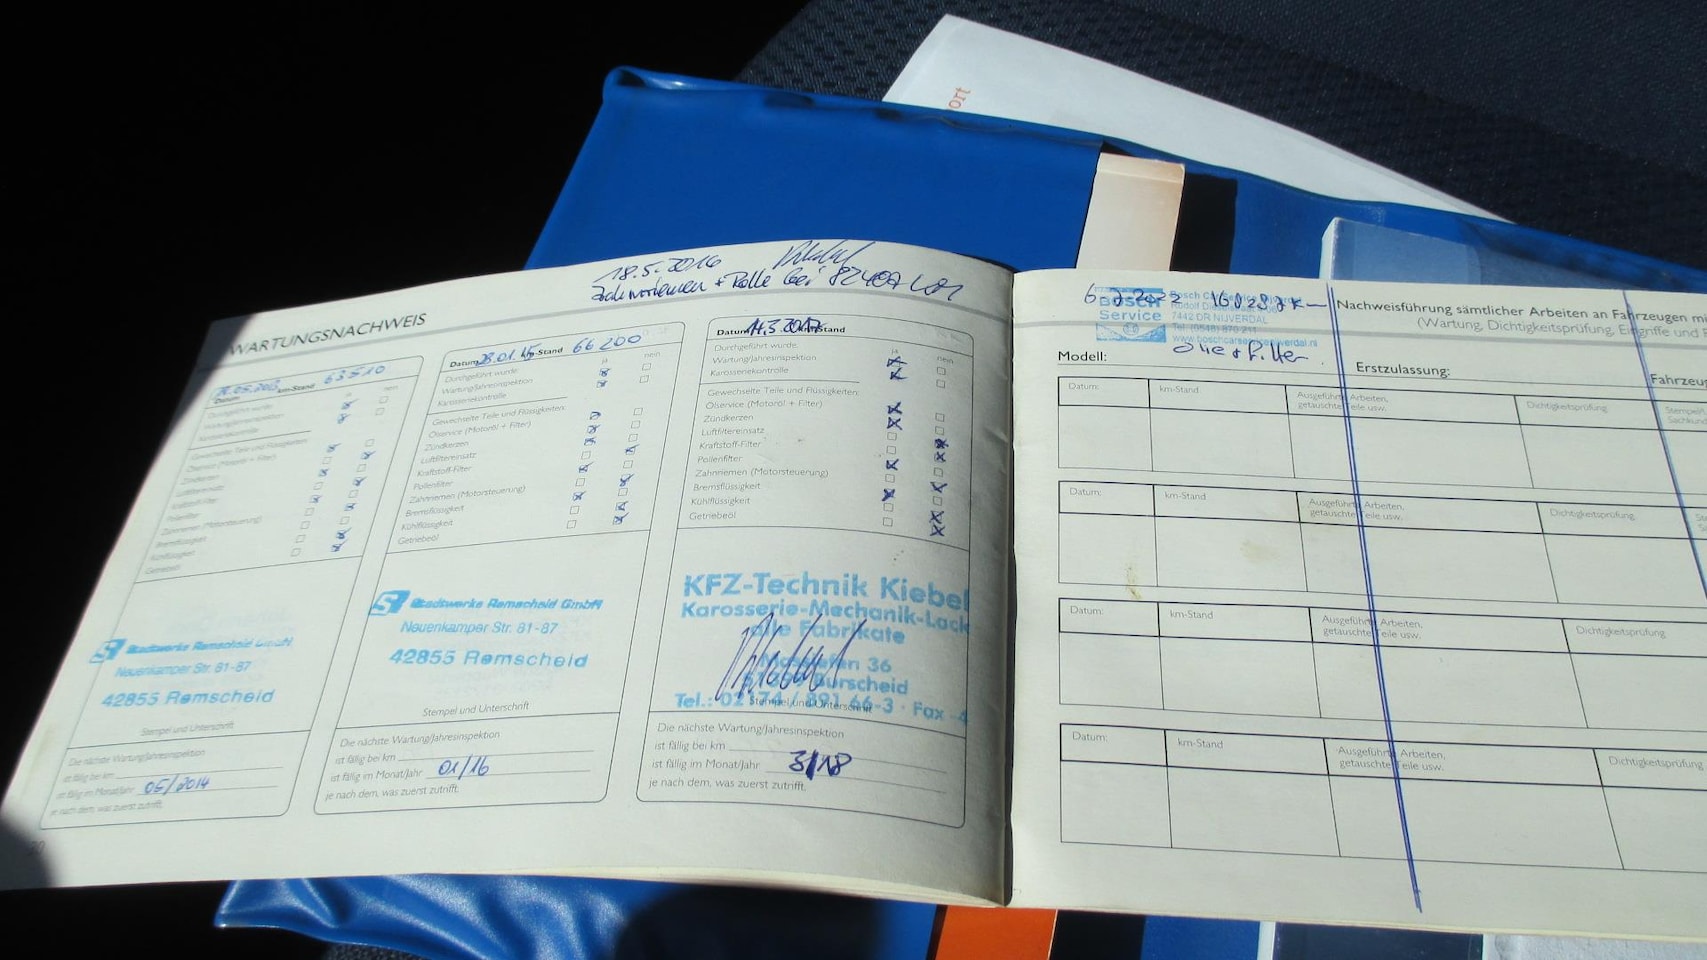 ort
18.5.2016
Zahnriemen + Rolle bei 82407 km
WARTUNGSNACHWEIS
Datum km-Stand 63510
ja nein
Durchgeführt wurde:
Wartung/Jahresinspektion
Karosseriekontrolle
Gewechselte Teile und Flüssigkeiten:
Ölservice (Motoröl + Filter)
Zündkerzen
Luftfiltereinsatz
Kraftstoff-Filter
Pollenfilter
Zahnriemen (Motorsteuerung)
Bremsflüssigkeit
Kühlflüssigkeit
Getriebeöl
Stadtwerke Remscheid GmbH
Neuenkamper Str. 81-87
42855 Remscheid
Stempel und Unterschrift
Die nächste Wartung/Jahresinspektion
ist fällig bei km
ist fällig im Monat/Jahr 05/2014
je nach dem, was zuerst zutrifft.
20
Datum 28.01.15 km-Stand 66200
ja nein
Durchgeführt wurde:
Wartung/Jahresinspektion
Karosseriekontrolle
Gewechselte Teile und Flüssigkeiten:
Ölservice (Motoröl + Filter)
Zündkerzen
Luftfiltereinsatz
Kraftstoff-Filter
Pollenfilter
Zahnriemen (Motorsteuerung)
Bremsflüssigkeit
Kühlflüssigkeit
Getriebeöl
Stadtwerke Remscheid GmbH
Neuenkamper Str. 81-87
42855 Remscheid
Stempel und Unterschrift
Die nächste Wartung/Jahresinspektion
ist fällig bei km
ist fällig im Monat/Jahr 01/16
je nach dem, was zuerst zutrifft.
Datum 14.3.2017 km-Stand
ja nein
Durchgeführt wurde:
Wartung/Jahresinspektion
Karosseriekontrolle
Gewechselte Teile und Flüssigkeiten:
Ölservice (Motoröl + Filter)
Zündkerzen
Luftfiltereinsatz
Kraftstoff-Filter
Pollenfilter
Zahnriemen (Motorsteuerung)
Bremsflüssigkeit
Kühlflüssigkeit
Getriebeöl
KFZ-Technik Kiebel
Karosserie-Mechanik-Lack
alle Fabrikate
36
Burscheid
Tel.: 02174 / 891 66-3 · Fax -4
Stempel und Unterschrift
Die nächste Wartung/Jahresinspektion
ist fällig bei km
ist fällig im Monat/Jahr 3/18
je nach dem, was zuerst zutrifft.
BOSCH
Service
7442 DR NIJVERDAL
Tel. (0548)
Olie + filter
Nachweisführung sämtlicher Arbeiten an Fahrzeugen mi
(Wartung, Dichtigkeitsprüfung, Eingriffe und
Modell: Erstzulassung: Fahrzeug
Datum: km-Stand Ausgeführte Arbeiten, getauschte Teile usw. Dichtigkeitsprüfung Stempel/
Sachkund
Datum: km-Stand Ausgeführte Arbeiten, getauschte Teile usw. Dichtigkeitsprüfung
Datum: km-Stand Ausgeführte Arbeiten, getauschte Teile usw. Dichtigkeitsprüfung
Datum: km-Stand Ausgeführte Arbeiten, getauschte Teile usw. Dichtigkeitsprüfung